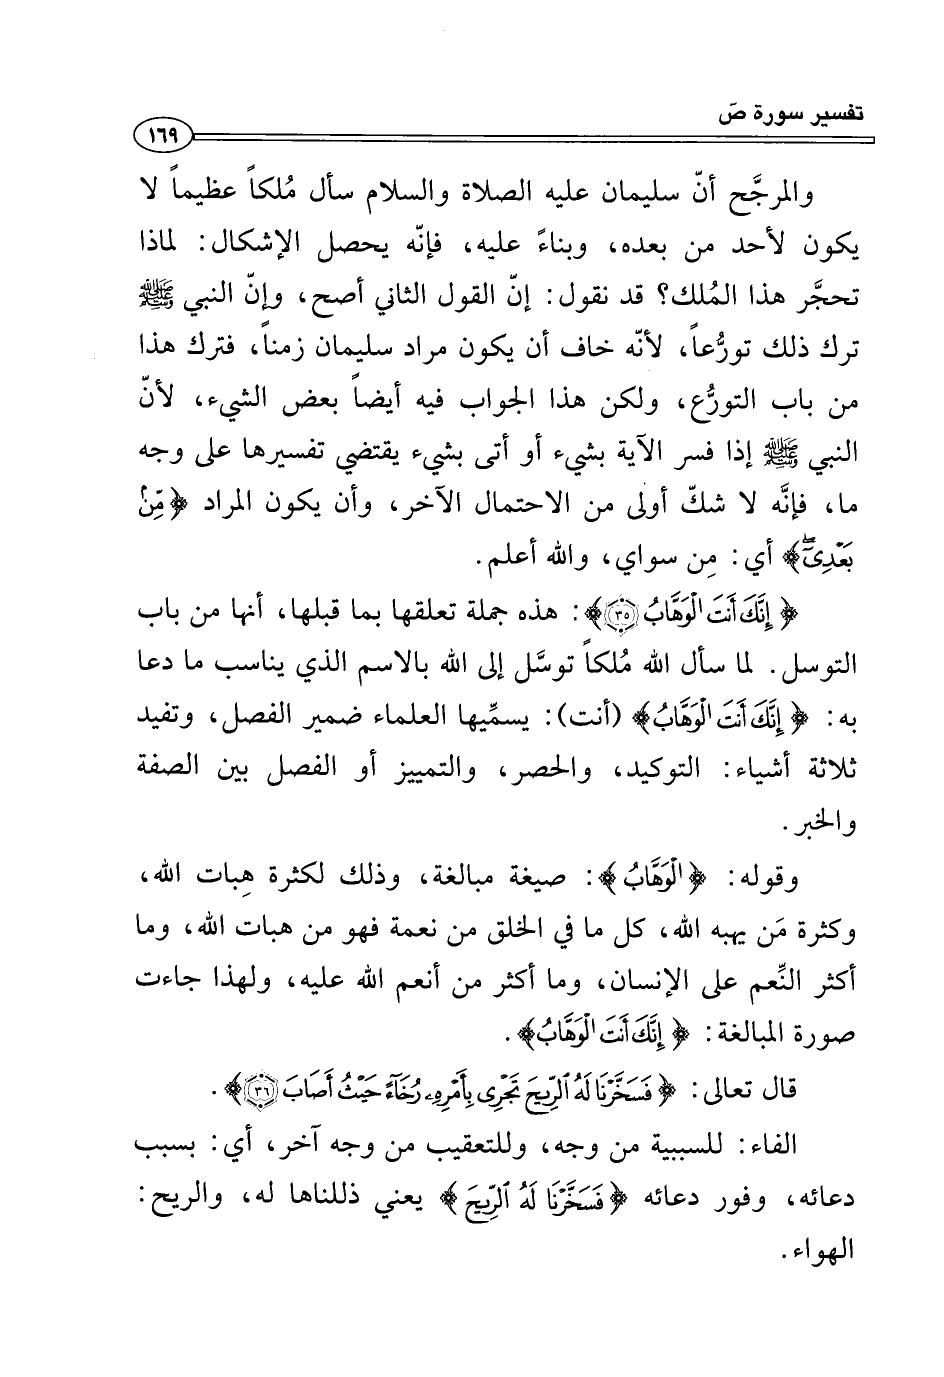 تفسير سورة صَ
١٦٩
والمرجَّح أنّ سليمان عليه الصلاة والسلام سأل مُلكاً عظيماً لا
يكون لأحد من بعده، وبناءً عليه، فإنّه يحصل الإشكال: لماذا
تحجَّر هذا المُلك؟ قد نقول: إنّ القول الثاني أصح، وإنّ النبي ﷺ
ترك ذلك تورُّعاً، لأنّه خاف أن يكون مراد سليمان زمناً، فترك هذا
من باب التورُّع، ولكن هذا الجواب فيه أيضاً بعض الشيء، لأنّ
النبي ﷺ إذا فسر الآية بشيء أو أتى بشيء يقتضي تفسيرها على وجه
ما، فإنَّه لا شكّ أولى من الاحتمال الآخر، وأن يكون المراد ﴿مِّنۢ
بَعْدِىٓۖ﴾ أي: مِن سواي، والله أعلم.
﴿إِنَّكَ أَنتَ ٱلْوَهَّابُ ٣٥﴾: هذه جملة تعلقها بما قبلها، أنها من باب
التوسل. لما سأل الله مُلكاً توسَّل إلى الله بالاسم الذي يناسب ما دعا
به: ﴿إِنَّكَ أَنتَ ٱلْوَهَّابُ﴾ (أنت): يسمِّيها العلماء ضمير الفصل، وتفيد
ثلاثة أشياء: التوكيد، والحصر، والتمييز أو الفصل بين الصفة
والخبر.
وقوله: ﴿ٱلْوَهَّابُ﴾: صيغة مبالغة، وذلك لكثرة هِبات الله،
وكثرة مَن يهبه الله، كل ما في الخلق من نعمة فهو من هبات الله، وما
أكثر النِّعم على الإنسان، وما أكثر من أنعم الله عليه، ولهذا جاءت
صورة المبالغة: ﴿إِنَّكَ أَنتَ ٱلْوَهَّابُ﴾.
قال تعالى: ﴿فَسَخَّرْنَا لَهُ ٱلرِّيحَ تَجْرِى بِأَمْرِهِۦ رُخَآءً حَيْثُ أَصَابَ ٣٦﴾.
الفاء: للسببية من وجه، وللتعقيب من وجه آخر، أي: بسبب
دعائه، وفور دعائه ﴿فَسَخَّرْنَا لَهُ ٱلرِّيحَ﴾ يعني ذللناها له، والريح:
الهواء.